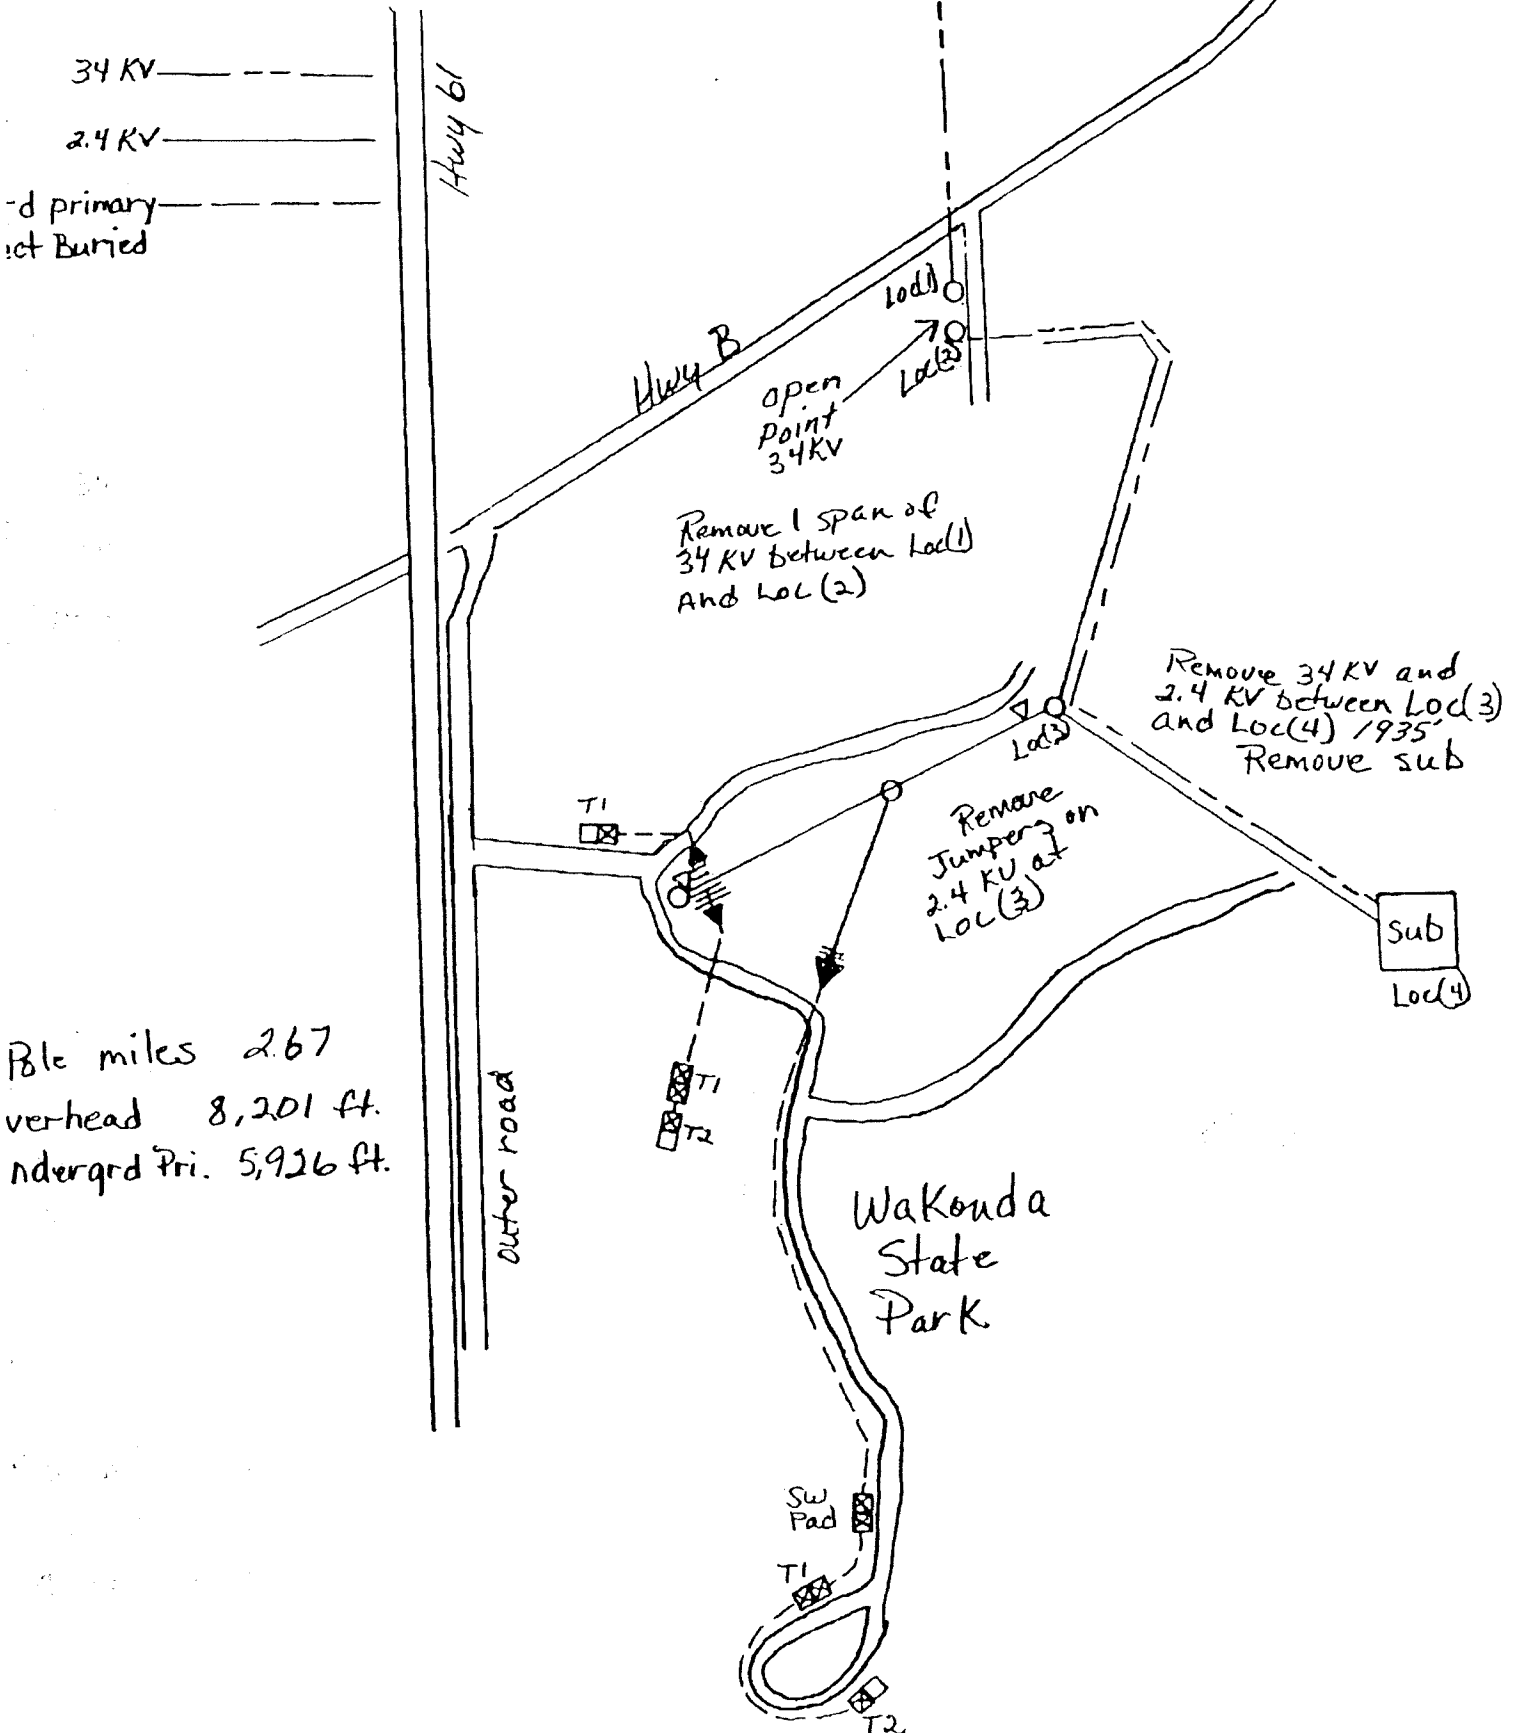 34 KV
2.4 KV
d primary
ct Buried
Hwy 61
Hwy B
Loc(1)
Loc(2)
open
Point
34KV
Remove 1 span of
34 KV between Loc(1)
And Loc(2)
Remove 34 KV and
2.4 KV between Loc(3)
and Loc(4) 1935'
Remove sub
Loc(3)
T1
Remove
Jumpers on
2.4 KV at
Loc(3)
Sub
Loc(4)
Pole miles 2.67
verhead 8,201 ft.
ndergrd Pri. 5,926 ft.
T1
T2
outer road
Wakonda
State
Park
SW
Pad
T1
T2